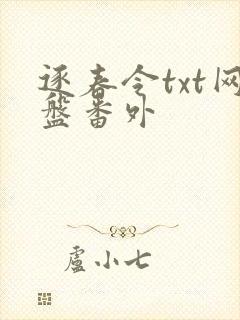 逐春令txt网
盘番外
盧小七